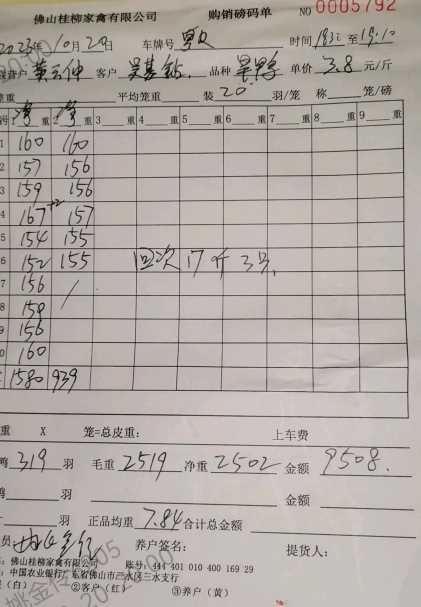 佛山桂柳家禽有限公司 购销磅码单 NO 0005792
2023年10月20日 车牌号 时间 至19:10
养户 黄云仲 客户 品种 单价 3.8 元/斤
笼重 平均笼重 装 20 羽/笼 称 笼/磅
净重 净重 3 重 4 重 5 重 6 重 7 重 8 重 9 重
1 160 160
2 157 156
3 159 156
4 167 +2 157
5 154 155
6 152 155 回次17斤3号.
7 156 /
8 159
9 156
0 160
1580 939
重 X 笼=总皮重: 上车费
鸭 319 羽 毛重 2519 净重 2502 金额 9508.
鸭 羽 金额
羽 正品均重 7.84 合计总金额
员: 养户签名: 提货人:
佛山桂柳家禽有限公司 账号: 444 401 010 400 169 29
中国农业银行广东省佛山市三水区三水支行
(白) ②客户(红) ③养户(黄)